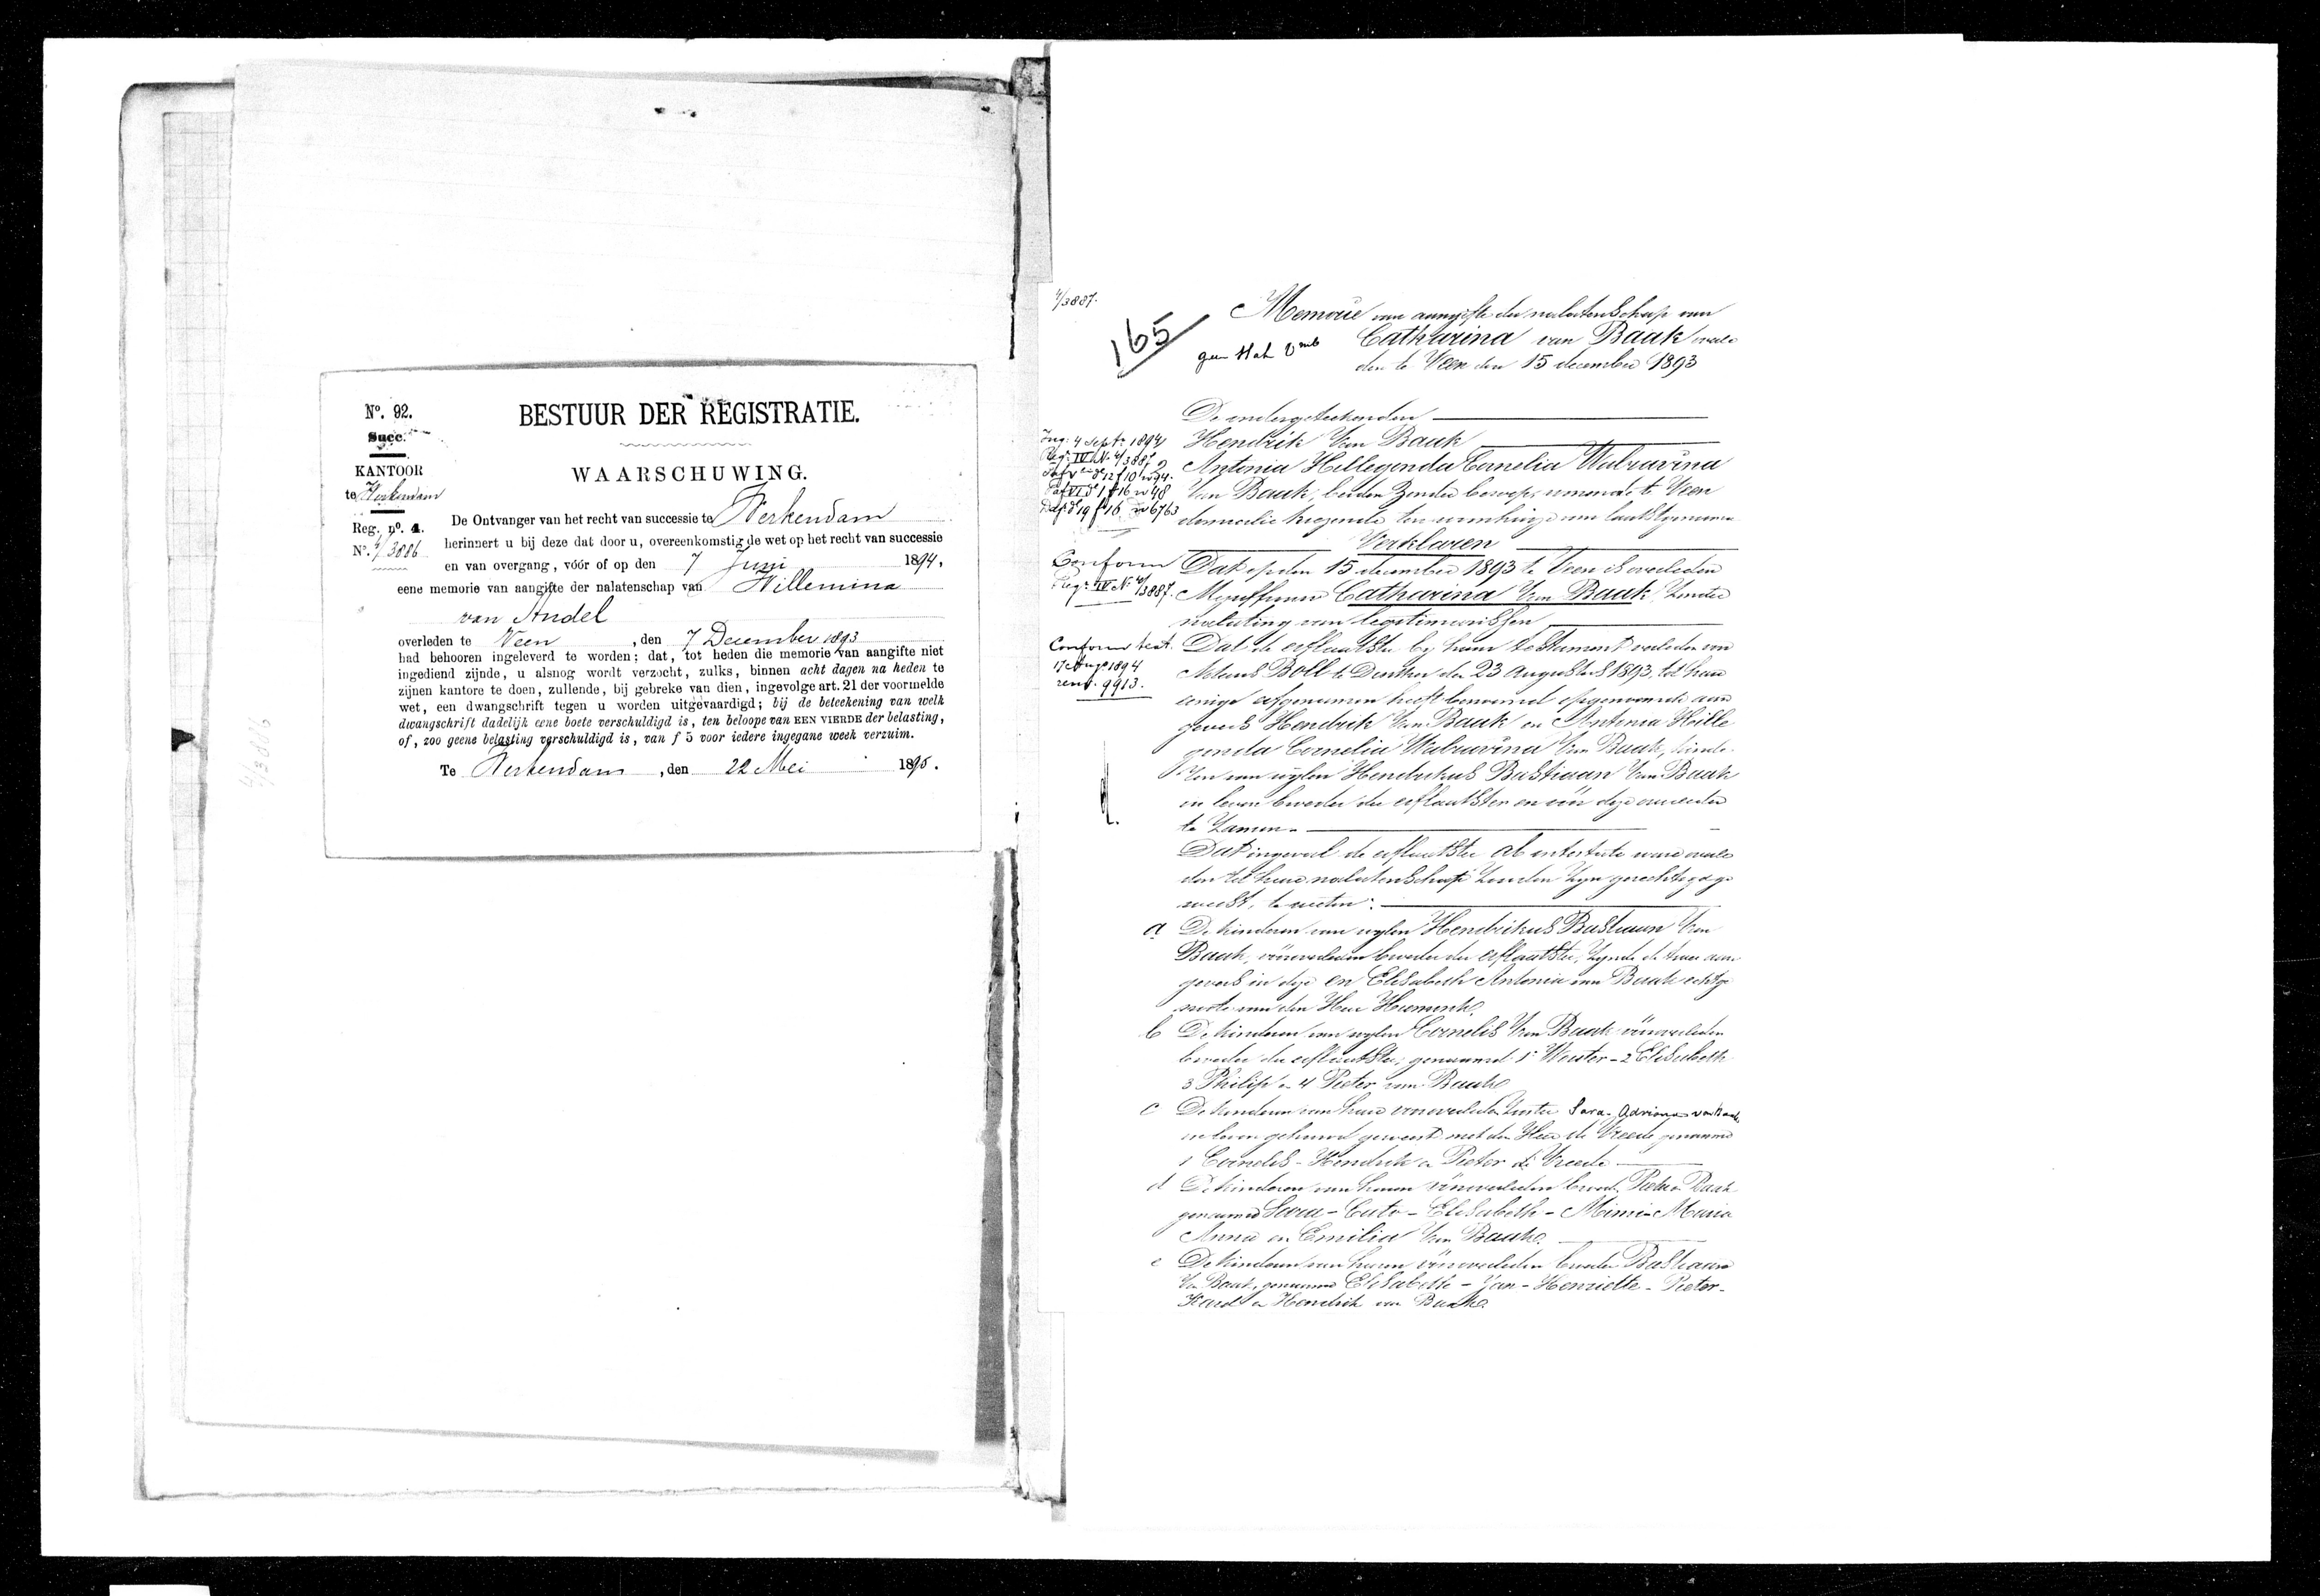 No. 92.
Succ.
KANTOOR
te Werkendam
Reg. no. 4.
No. 4/3886
BESTUUR DER REGISTRATIE.
WAARSCHUWING.
De Ontvanger van het recht van successie te Werkendam
herinnert u bij deze dat door u, overeenkomstig de wet op het recht van successie
en van overgang, vóór of op den 7 Juni 1894,
eene memorie van aangifte der nalatenschap van Willemina
van Andel
overleden te Veen, den 7 December 1893
had behooren ingeleverd te worden; dat, tot heden die memorie van aangifte niet
ingediend zijnde, u alsnog wordt verzocht, zulks, binnen acht dagen na heden te
zijnen kantore te doen, zullende, bij gebreke van dien, ingevolge art. 21 der voormelde
wet, een dwangschrift tegen u worden uitgevaardigd; bij de beteekening van welk
dwangschrift dadelijk eene boete verschuldigd is, ten beloope van EEN VIERDE der belasting,
of, zoo geene belasting verschuldigd is, van f 5 voor iedere ingegane week verzuim.
Te Werkendam, den 22 Mei 1895.
4/3886
4/3887.
165
Memorie van aangifte der nalatenschap van
Catharina van Baak overle
den te Veen den 15 december 1893
De ondergeteekenden
Hendrik Van Baak
Antonia Hillegonda Cornelia Walravina
Van Baak, beiden zonder beroep, wonende te Veen
domicilie kiezende ten woonhuize van laatstgenoemde
Verklaren
Dat op den 15 december 1893 te Veen is overleden
Mejuffrouw Catharina Van Baak, zonder
nalating van legitimarissen
Dat de erflaatster bij haar testament verleden voor
Notaris Boll te Deuther den 23 Augustus 1893, tot hare
enige erfgenamen heeft benoemd opgenoemde aan
gevers Hendrik Van Baak en Antonia Hille
gonda Cornelia Walravina Van Baak, kinde
ren van wijlen Hendrikus Bastiaan Van Baak
in leven broeder der erflaatster en vóór deze overleden
te Zamen.
Dat ingeval de erflaatster ab intestato ware overle
den tot hare nalatenschap zouden zijn gerechtigd ge
weest, te weten:
a De kinderen van wijlen Hendrikus Bastiaan Van
Baak, vóóroverleden broeder der erflaatster, zijnde de twee aan
gevers in deze en Elisabeth Antonia van Baak echtge
noote van den Heer
b De kinderen van wijlen Cornelis Van Baak vóóroverleden
broeder der erflaatster, genaamd 1 Wouter - 2 Elisabeth
3 Philip - 4 Pieter van Baak
c De kinderen van hare vooroverleden zuster Sara Adriana van Baak
in leven gehuwd geweest met den Heer de Vreede genaamd
1 Cornelis - Hendrik en Pieter de Vreede
d De kinderen van haren vóóroverleden broeder Pieter Baak
genaamd Sara - Cato - Elisabeth - Mimi - Maria
Anna en Emilia Van Baak.
e De kinderen van haren vóóroverleden broeder Bastiaan
Van Baak, genaamd Elisabeth - Jan - Henriette - Pieter -
Karel en Hendrik van Baak
Ing: 4 Sept. 1894
Reg: IV No. 4/3887
Conform
Reg: IV No. 4/3887.
Conform test.
17 Aug. 1894
9913.